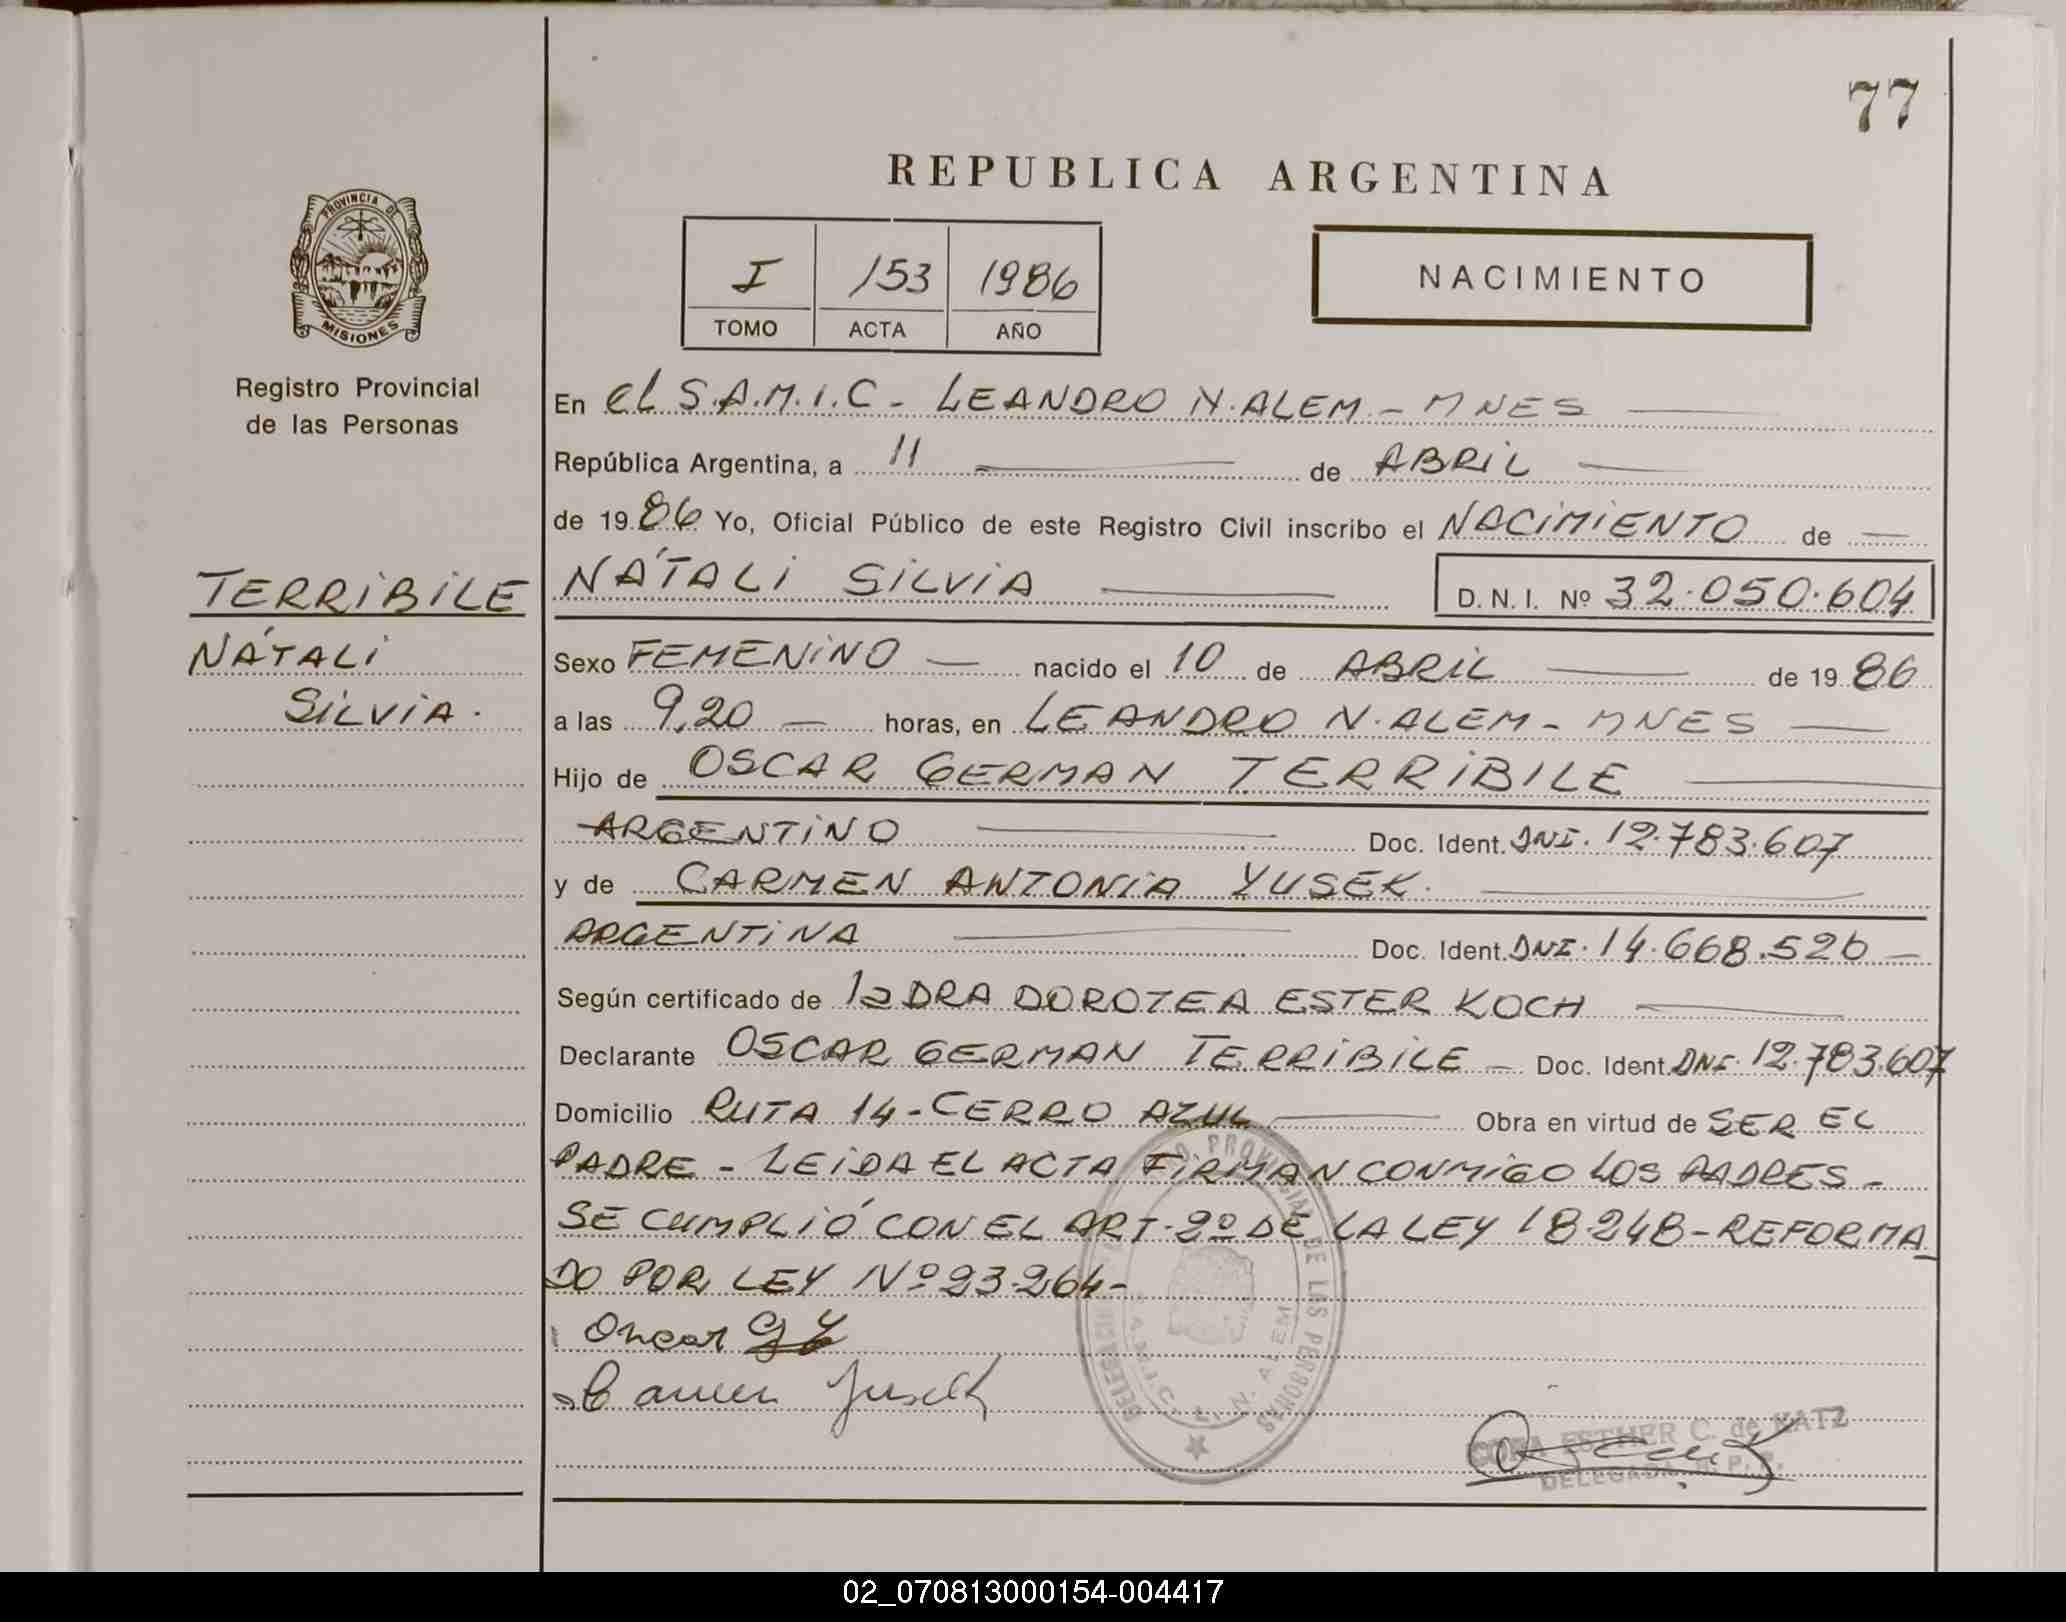 77
REPUBLICA ARGENTINA
PROVINCIA DE
MISIONES
I 153 1986
TOMO ACTA AÑO
NACIMIENTO
Registro Provincial
de las Personas
En el S.A.M.I.C - LEANDRO N. ALEM - MNES
República Argentina, a 11 de ABRIL
de 1986 Yo, Oficial Público de este Registro Civil inscribo el NACIMIENTO de
TERRIBILE
NÁTALI
SILVIA.
NÁTALI SILVIA D. N. I. Nº 32.050.604
Sexo FEMENINO nacido el 10 de ABRIL de 1986
a las 9,20 horas, en LEANDRO N. ALEM - MNES
Hijo de OSCAR GERMAN TERRIBILE
ARGENTINO Doc. Ident. DNI. 12.783.607
y de CARMEN ANTONIA YUSEK.
ARGENTINA Doc. Ident. DNI. 14.668.526
Según certificado de la DRA DOROTEA ESTER KOCH
Declarante OSCAR GERMAN TERRIBILE - Doc. Ident. DNI. 12.783.607
Domicilio RUTA 14 - CERRO AZUL Obra en virtud de SER EL
PADRE - LEIDA EL ACTA FIRMAN CONMIGO LOS PADRES -
SE CUMPLIÓ CON EL ART. 2º DE LA LEY 18.248 - REFORMA
DO POR LEY Nº 23.264 -
Oscar
Carmen Jusek
PROVINCIAL DE LAS PERSONAS
S.A.M.I.C. L. N. ALEM
CORA ESTHER C. de KATZ
DELEGADA R. P. P.
02_070813000154-004417